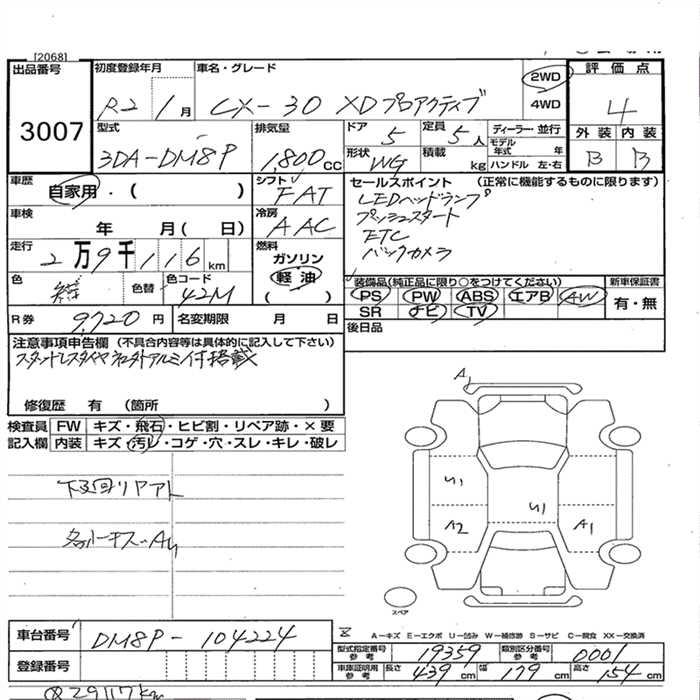 [2068]
出品番号 初度登録年月 車名・グレード 2WD 評価点
3007 R2 1月 CX-30 XDプロアクティブ 4WD 4
型式 排気量 ドア 定員 ディーラー・並行 外装 内装
3DA-DM8P 1,800cc 5 5人 モデル年式 年 B B
形状 積載
WG kg ハンドル 左・右
車歴 シフト セールスポイント (正常に機能するものに限ります)
自家用・( ) FAT LEDヘッドランプ
車検 冷房 プッシュスタート
年 月( 日) AAC ETC
走行 燃料 バックカメラ
2万9千116km ガソリン
色 色替 色コード 軽油
42M ( )
装備品(純正品に限り○をつけてください) 新車保証書
PS PW ABS エアB AW 有・無
SR ナビ TV
R券 9,720円 名変期限 月 日 後日品
注意事項申告欄 (不具合内容等は具体的に記入して下さい)
スタットレスタイヤ アルミ付搭載
修復歴 有 (箇所 )
検査員 FW キズ・飛石・ヒビ割・リペア跡・×要
記入欄 内装 キズ・汚レ・コゲ・穴・スレ・キレ・破レ
A1
U1
U1
A2
A1
下廻り
スペア
車台番号 DM8P-104224
A-キズ E-エクボ U-凹み W-補修跡 S-サビ C-腐食 XX-交換済
型式指定番号 参考 19359 類別区分番号 参考 0001
登録番号 車庫証明用 参考 長さ 439cm 幅 179cm 高さ 154cm
29117km